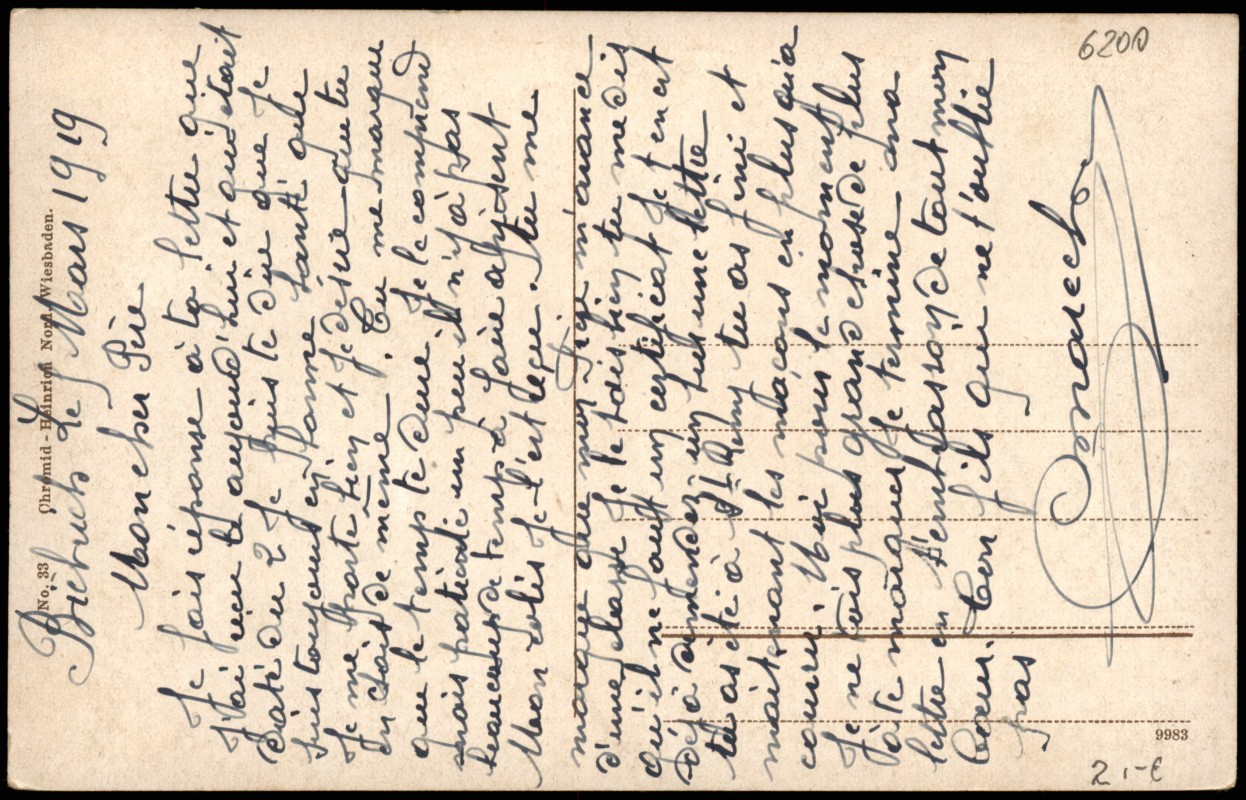 No. 33 Chromid - Heinrich Nord, Wiesbaden.
Biebrich Le Mars 1919
Mon cher Père
Je fais réponse à ta lettre que
j'ai reçu aujourd'hui et qui était
daté du 2 Je puis te dire que je
suis toujours en bonne santé que
Je me porte bien et je désire que tu
en sois de même. Tu me marque
que le temp te dure Je le comprend
mais patiente un peu il n'y à pas
beaucoup de temp à faire à présent
Mon colis Je l'est reçu. Tu me
marque que mon frère m'avance
d'une classe Je le vois bien tu me dis
qu'il me faut un certificat Je t'en est
déjà demandez un sur une lettre
tu as été à St Remy tu as fini et
maintenant les maçons en plus qui a
couvri Moi pour le moment
Je ne vois plus grand chose de plus
à te marquer Je termine ma
lettre en t'embrassant de tout mon
Cœur. Ton fils qui ne t'oublie
pas
6200
9983
2,-€